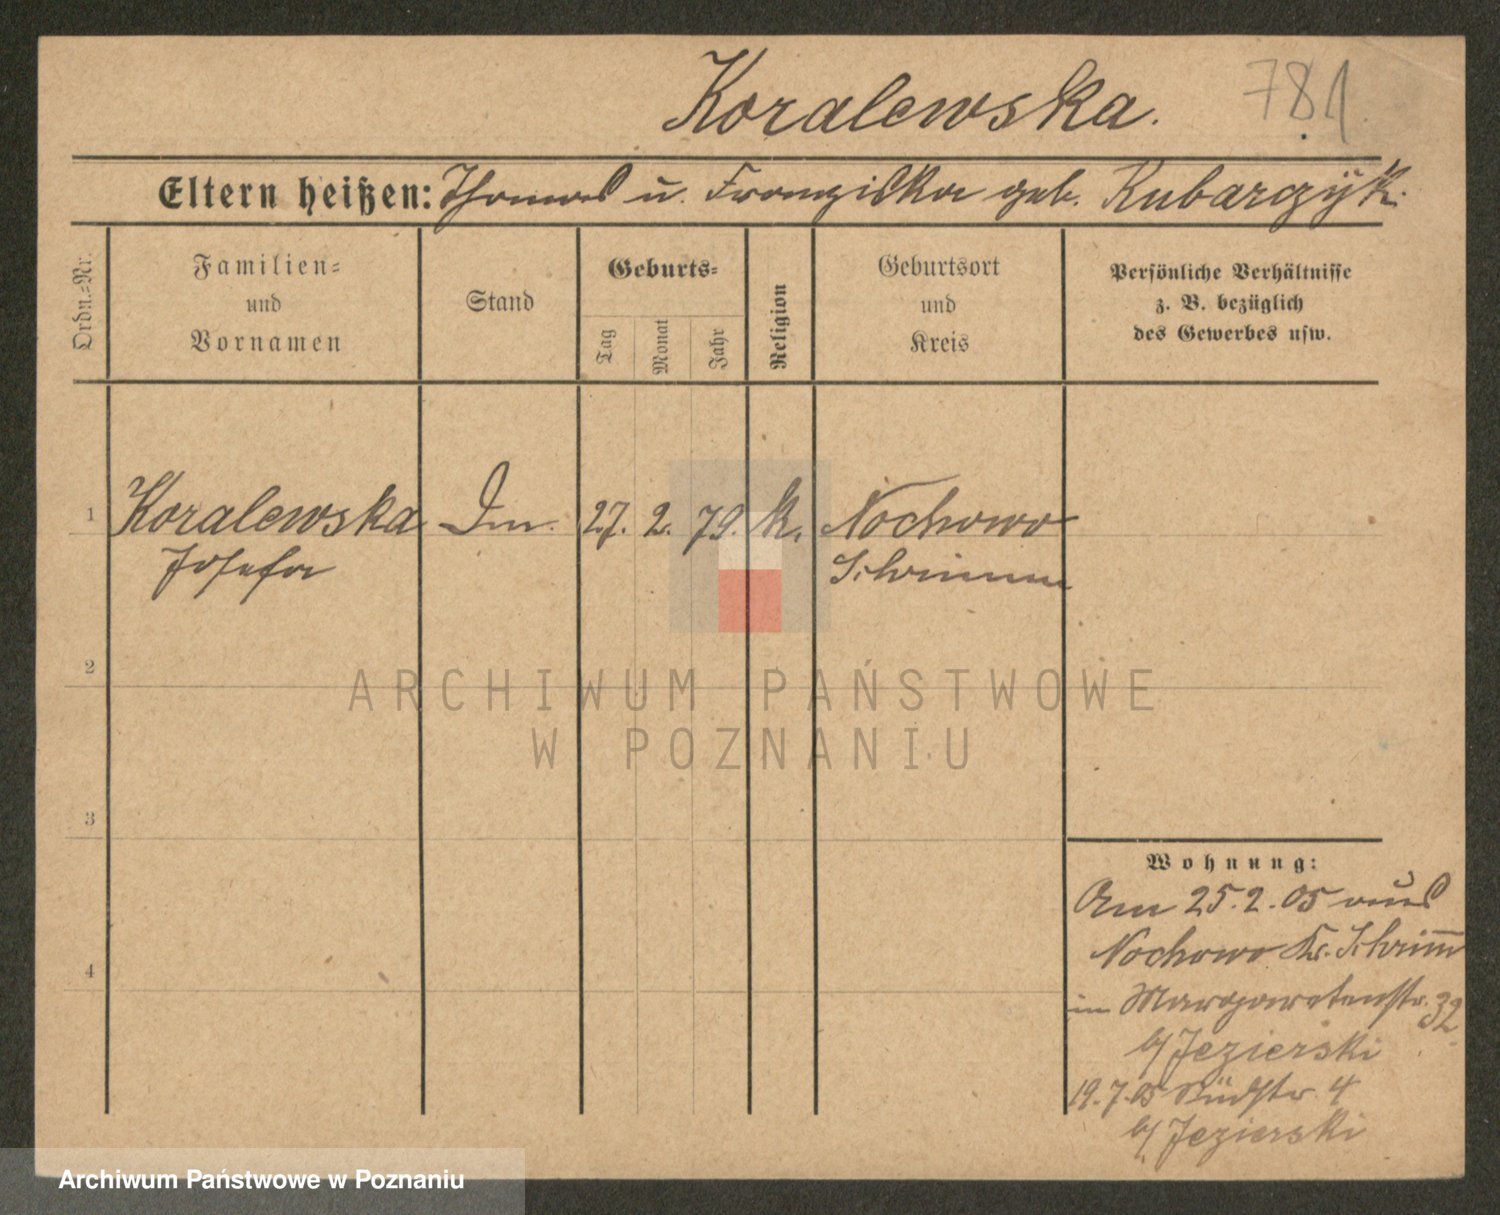 Koralewska. 781
Eltern heißen: Thomas u. Franziska geb. Kubarczÿk.
Ordn.=Nr.
Familien=
und
Vornamen
Stand
Geburts=
Tag
Monat
Jahr
Religion
Geburtsort
und
Kreis
Persönliche Verhältnisse
z. B. bezüglich
des Gewerbes usw.
1 Koralewska 27. 2. 79. k. Nochowo
Josefa Schrimm
2
ARCHIWUM PAŃSTWOWE
W POZNANIU
3
Wohnung:
Am 25.2.05 aus
Nochowo Kr. Schrimm
4
in Margaretenstr. 32
b/ Jezierski
19.7.05 Südstr. 4
b/ Jezierski
Archiwum Państwowe w Poznaniu